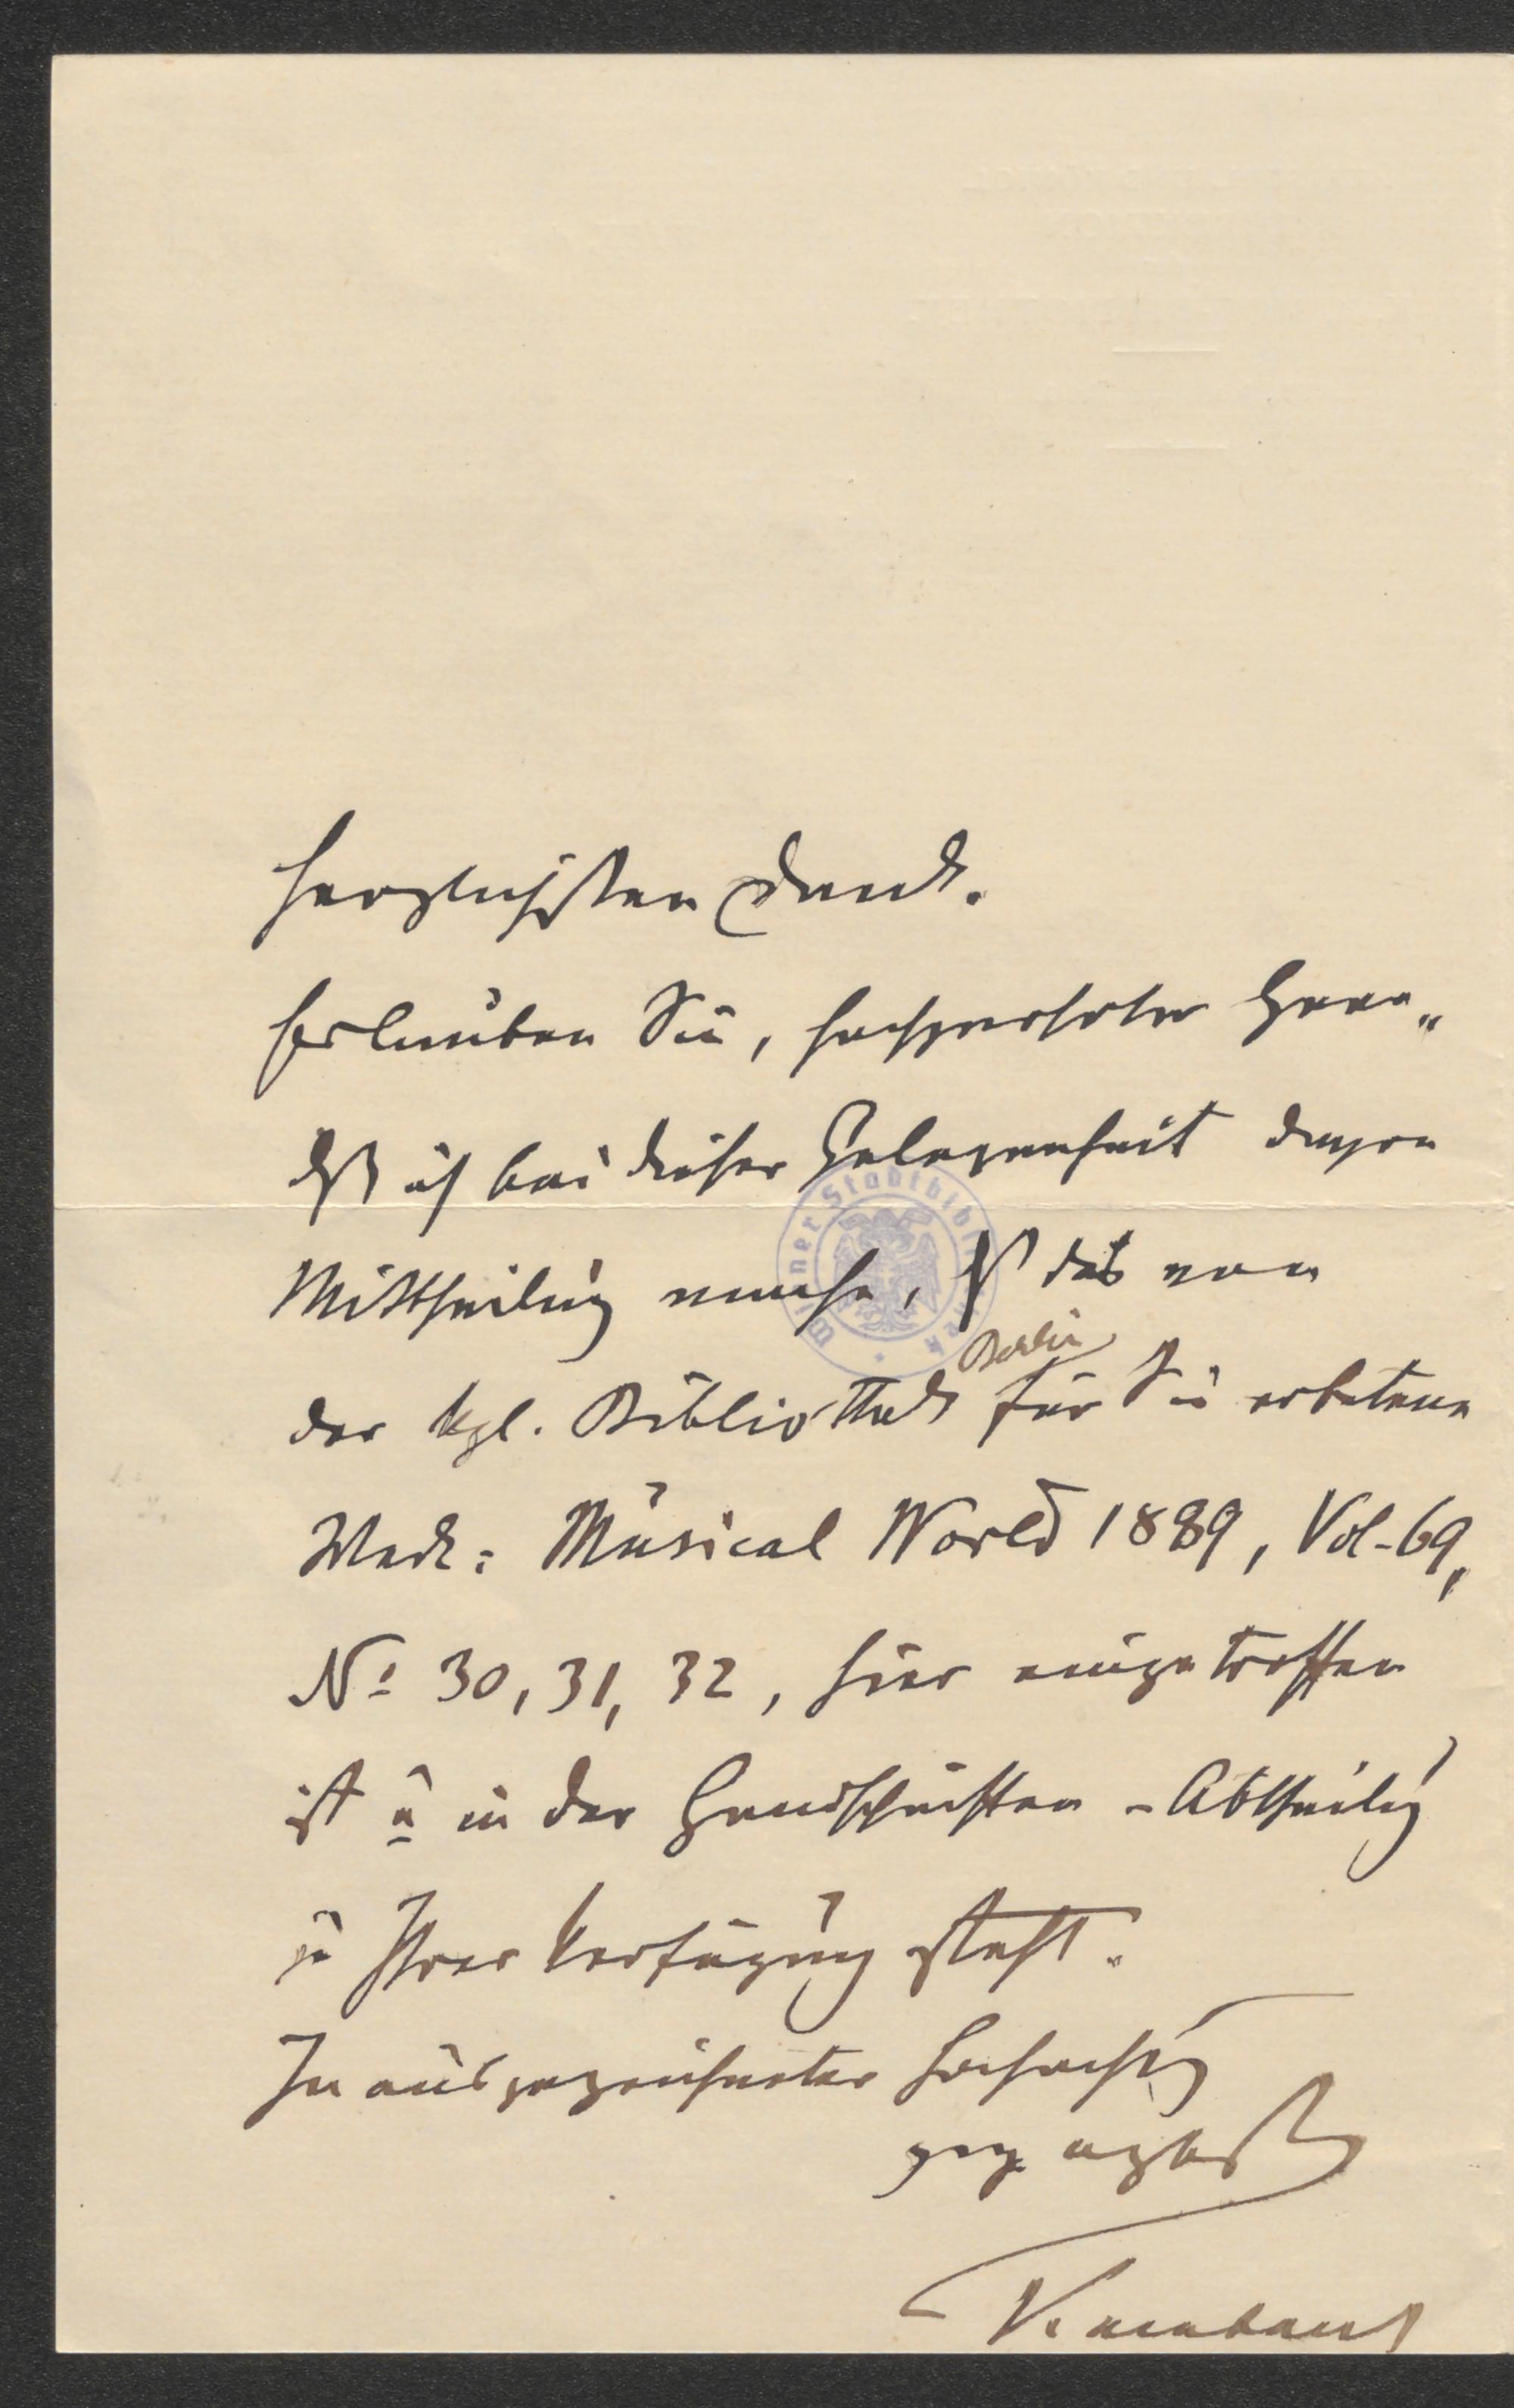 herzlichsten Dank.
Erlauben Sie, hochverehrter Herr,
dß ich bei dieser Gelegenheit davon
Mittheilung mache, dß das von
der kgl. Bibliothek Berlin für Sie erbetene
Werk: Musical World 1889, Vol. 69,
No 30, 31, 32, hier eingetroffen
ist u in der Handschriften-Abtheilung
zu Ihrer Verfügung steht.
In ausgezeichneter Hochachtg
ergebenst
Wiener Stadtbibliothek